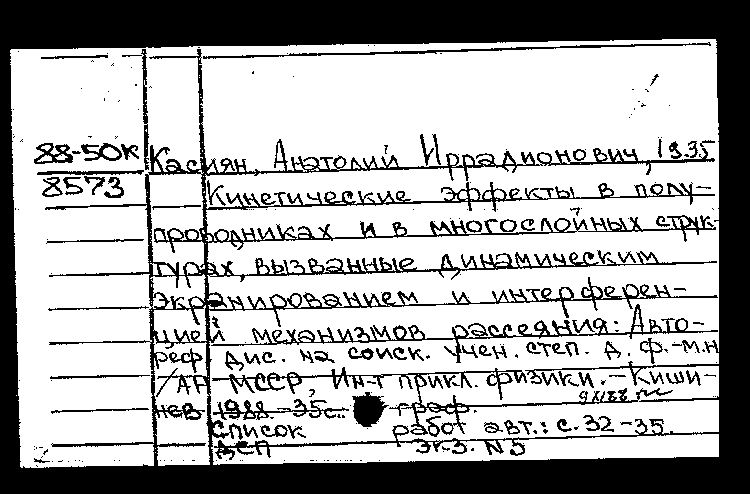 88-50к Касиян, Анатолий Иррадионович, 1935
8573 Кинетические эффекты в полу-
проводниках и в многослойных струк-
турах, вызванные динамическим
экранированием и интерферен-
цией механизмов рассеяния: Авто-
реф. дис. на соиск. учен. степ. д. ф.-м.н
/АН МССР, Ин-т прикл. физики. - Киши-
нев 1988 -35с. граф.
Список работ авт.: с. 32-35.
ДСП Экз. N5